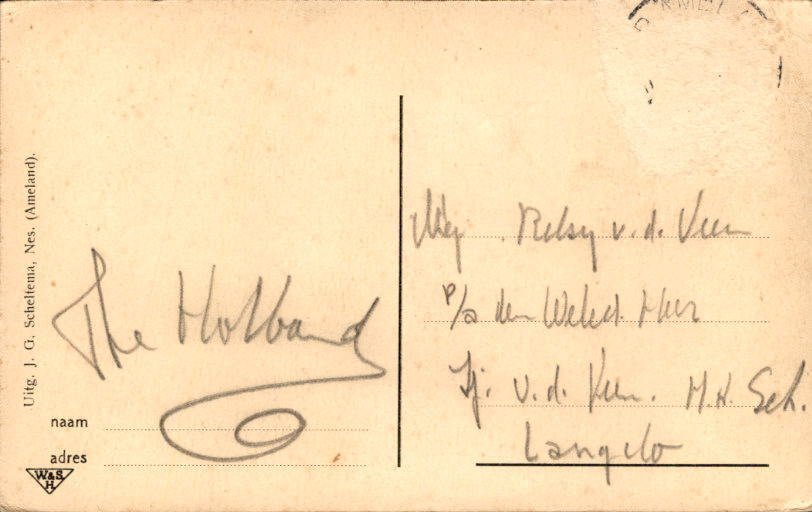 Uitg. J. G. Scheltema, Nes. (Ameland).
The Holband
naam
adres
W&S.
H.
Mej. Betsy v. d. Veen
p/a den Weled. Heer
Tj. v. d. Veen. H. d. Sch.
Langelo